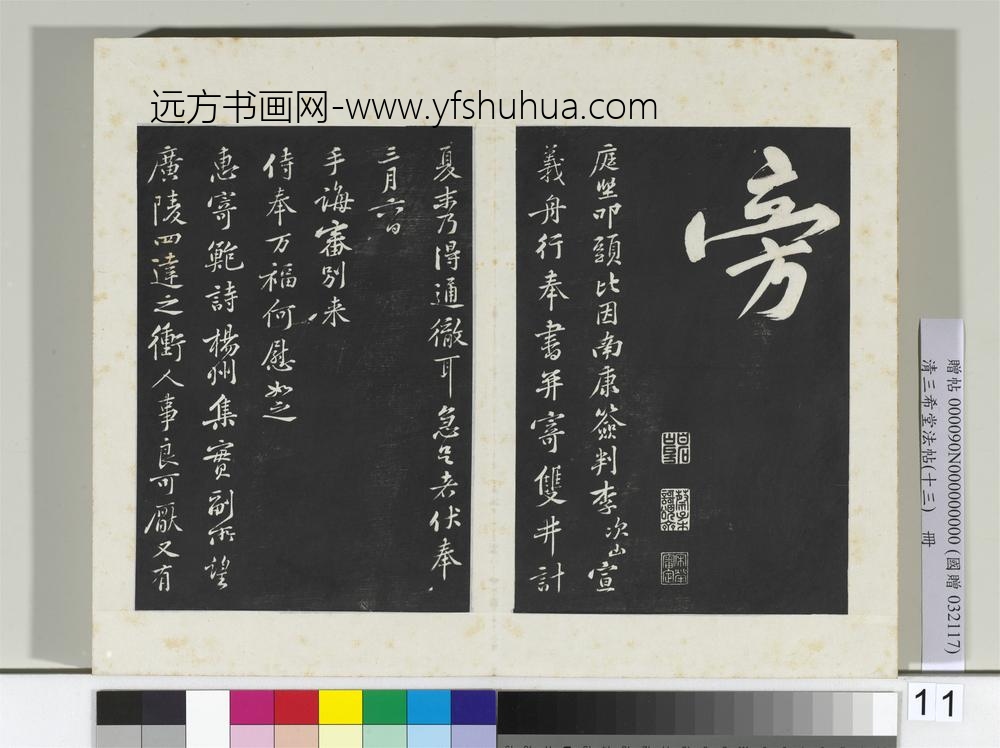 远方书画网-www.yfshuhua.com
旁
庭堅叩頭比因南康簽判李次山宣
義舟行奉書并寄雙井計
夏末乃得通徹耳急足者伏奉
三月六日
手誨審別来
侍奉万福何慰如之
惠寄鮑詩楊州集實副所望
廣陵四達之衝人事良可厭又有
贈帖 0000090N000000000 (國贈 032117)
清三希堂法帖(十三) 冊
11